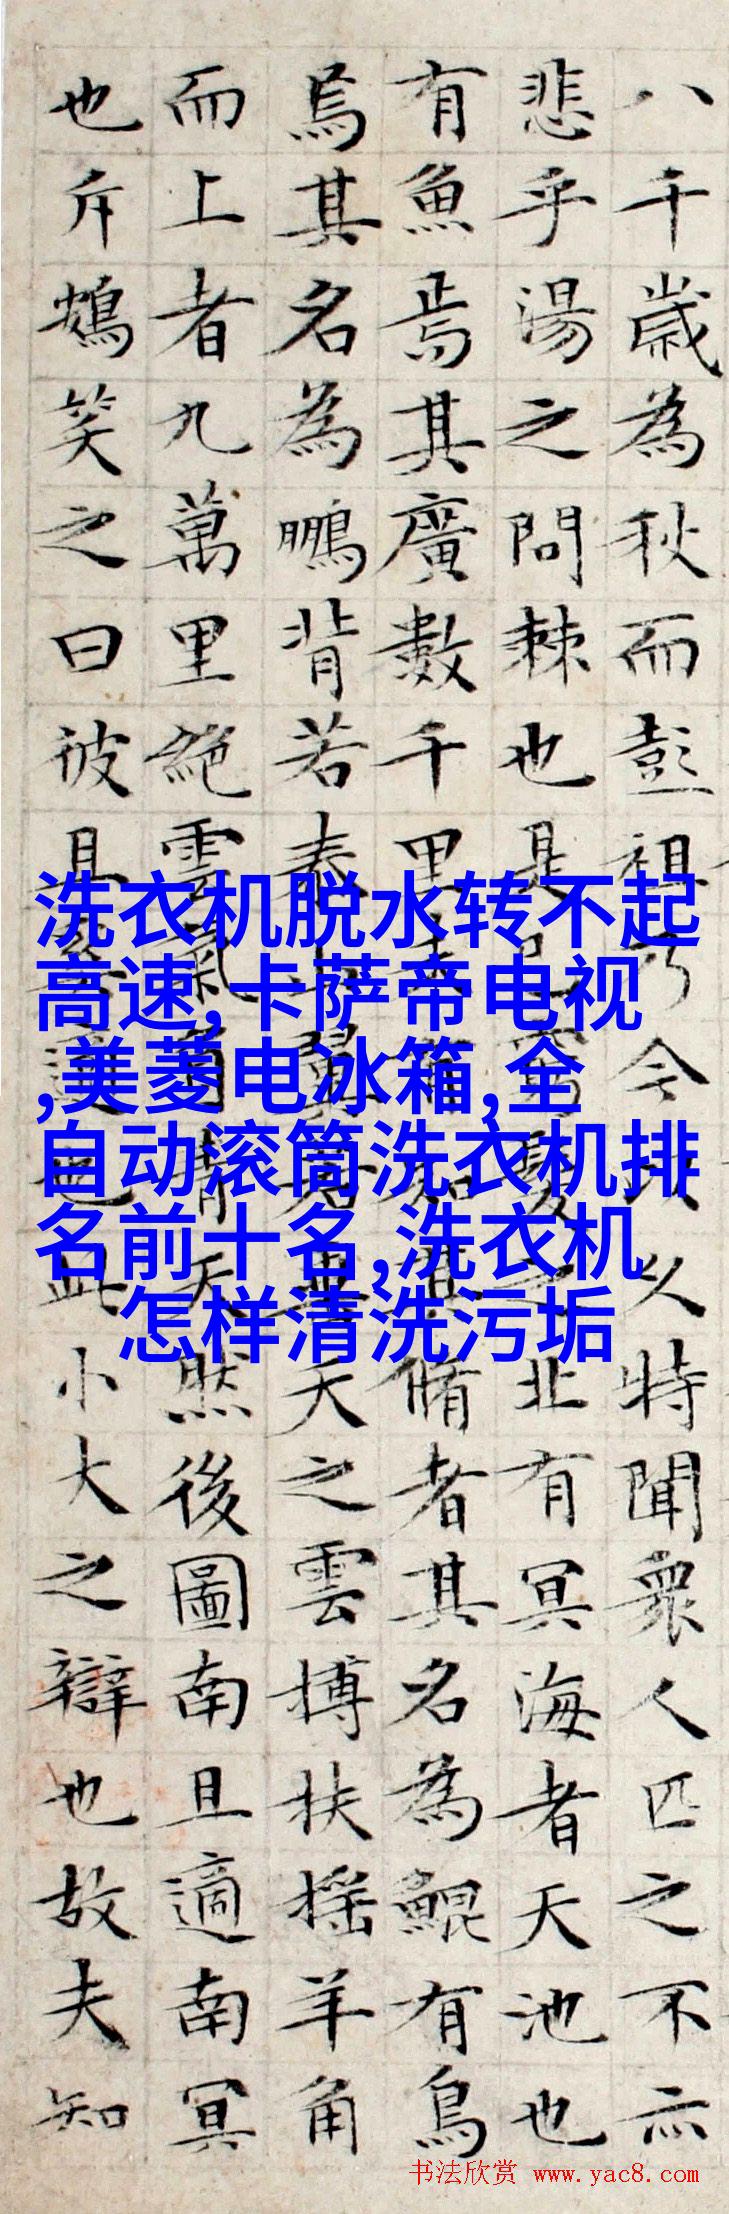 八千歲為秋而彭祖乃今以久特聞衆人匹之不亦
悲乎湯之問棘也是已窮髮之北有冥海者天池也
有魚焉其廣數千里未有知其脩者其名為鯤有鳥
焉其名為鵬背若泰山翼若垂天之雲搏扶摇羊角
而上者九萬里絶雲氣負青天然後圖南且適南冥
也斥鴳笑之曰彼且奚適也此小大之辯也故夫知
洗衣机脱水转不起
高速,卡萨帝电视
,美菱电冰箱,全
自动滚筒洗衣机排
名前十名,洗衣机
怎样清洗污垢
书法欣赏 www.yac8.com